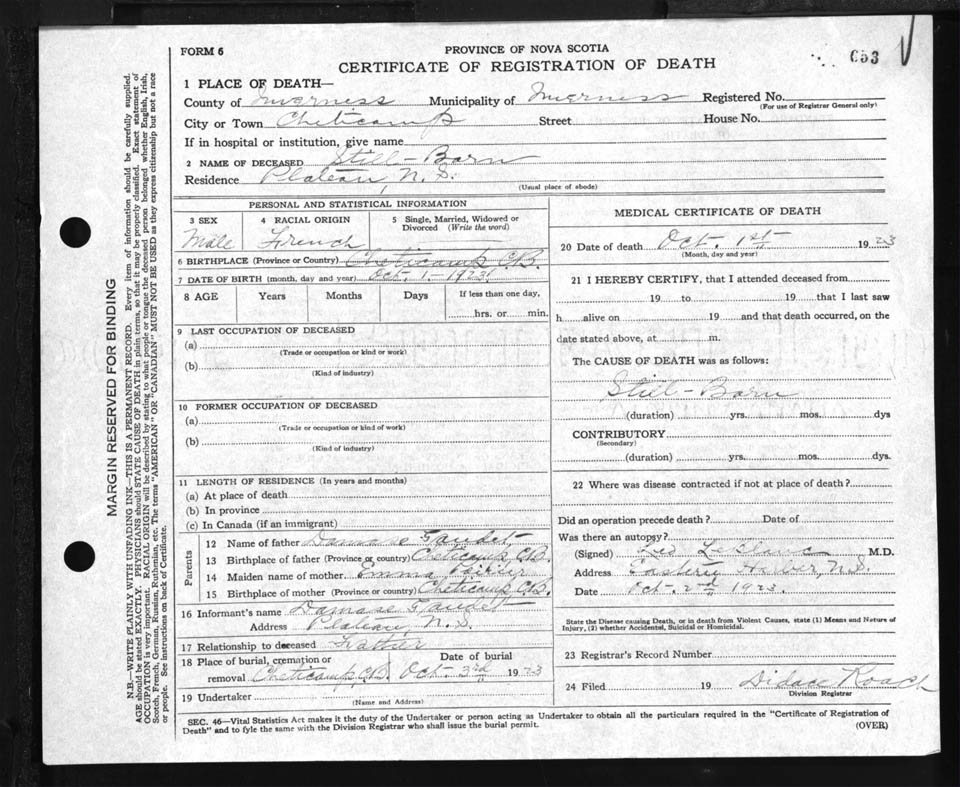 FORM 6
PROVINCE OF NOVA SCOTIA
CERTIFICATE OF REGISTRATION OF DEATH
653
1 PLACE OF DEATH—
County of Inverness Municipality of Inverness Registered No.
(For use of Registrar General only)
City or Town Cheticamp Street House No.
If in hospital or institution, give name
2 NAME OF DECEASED Still-Born
Residence Plateau, N. S.
(Usual place of abode)
PERSONAL AND STATISTICAL INFORMATION
3 SEX 4 RACIAL ORIGIN 5 Single, Married, Widowed or
Divorced (Write the word)
Male French
6 BIRTHPLACE (Province or Country) Cheticamp C.B.
7 DATE OF BIRTH (month, day and year) Oct. 1 - 1923
8 AGE Years Months Days If less than one day,
hrs. or min.
9 LAST OCCUPATION OF DECEASED
(a)
(Trade or occupation or kind or work)
(b)
(Kind of industry)
10 FORMER OCCUPATION OF DECEASED
(a)
(Trade or occupation or kind of work)
(b)
(Kind of industry)
11 LENGTH OF RESIDENCE (In years and months)
(a) At place of death
(b) In province
(c) In Canada (if an immigrant)
Parents
12 Name of father Damase Gaudet
13 Birthplace of father (Province or country) Cheticamp, C.B.
14 Maiden name of mother Emma Poirier
15 Birthplace of mother (Province or country) Cheticamp C.B.
16 Informant's name Damase Gaudet
Address Plateau N. S.
17 Relationship to deceased Father
18 Place of burial, cremation or Date of burial
removal Cheticamp, C.B. Oct. 3rd 1923
19 Undertaker
(Name and Address)
MEDICAL CERTIFICATE OF DEATH
20 Date of death Oct. 1st 1923
(Month, day and year)
21 I HEREBY CERTIFY, that I attended deceased from
19 to 19 that I last saw
h alive on 19 and that death occurred, on the
date stated above, at m.
The CAUSE OF DEATH was as follows:
Still-Born
(duration) yrs. mos. dys
CONTRIBUTORY
(Secondary)
(duration) yrs. mos. dys.
22 Where was disease contracted if not at place of death?
Did an operation precede death? Date of
Was there an autopsy?
(Signed) Leo LeBlanc M.D.
Address Eastern Harbor, N.S.
Date Oct. 2nd 1923.
State the Disease causing Death, or in death from Violent Causes, state (1) Means and Nature of
Injury, (2) whether Accidental, Suicidal or Homicidal.
23 Registrar's Record Number
24 Filed 19 Didace Roach
Division Registrar
SEC. 46—Vital Statistics Act makes it the duty of the Undertaker or person acting as Undertaker to obtain all the particulars required in the "Certificate of Registration of
Death" and to fyle the same with the Division Registrar who shall issue the burial permit. (OVER)
MARGIN RESERVED FOR BINDING
N.B.—WRITE PLAINLY WITH UNFADING INK—THIS IS A PERMANENT RECORD. Every item of information should be carefully supplied.
AGE should be stated EXACTLY. PHYSICIANS should STATE CAUSE OF DEATH in plain terms, so that it may be properly classified. Exact statement of
OCCUPATION is very important. RACIAL ORIGIN will be described by stating to what people or tongue the deceased person belonged whether English, Irish,
Scotch, French, German, Russian, Ruthenian, etc. The terms "AMERICAN" OR "CANADIAN" MUST NOT BE USED as they express citizenship but not a race
or people. See instructions on back of Certificate.